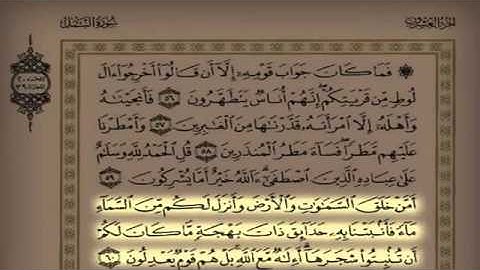 الجزء العشرون
سورة النمل
۞ فَمَا كَانَ جَوَابَ قَوْمِهِۦٓ إِلَّآ أَن قَالُوٓا۟ أَخْرِجُوٓا۟ ءَالَ
لُوطٍ مِّن قَرْيَتِكُمْ إِنَّهُمْ أُنَاسٌ يَتَطَهَّرُونَ ٥٦ فَأَنجَيْنَٰهُ
وَأَهْلَهُۥٓ إِلَّا ٱمْرَأَتَهُۥ قَدَّرْنَٰهَا مِنَ ٱلْغَٰبِرِينَ ٥٧ وَأَمْطَرْنَا
عَلَيْهِم مَّطَرًا فَسَآءَ مَطَرُ ٱلْمُنذَرِينَ ٥٨ قُلِ ٱلْحَمْدُ لِلَّهِ وَسَلَٰمٌ
عَلَىٰ عِبَادِهِ ٱلَّذِينَ ٱصْطَفَىٰٓ ءَآللَّهُ خَيْرٌ أَمَّا يُشْرِكُونَ ٥٩
أَمَّنْ خَلَقَ ٱلسَّمَٰوَٰتِ وَٱلْأَرْضَ وَأَنزَلَ لَكُم مِّنَ ٱلسَّمَآءِ
مَآءً فَأَنۢبَتْنَا بِهِۦ حَدَآئِقَ ذَاتَ بَهْجَةٍ مَّا كَانَ لَكُمْ
أَن تُنۢبِتُوا۟ شَجَرَهَآ أَءِلَٰهٌ مَّعَ ٱللَّهِ بَلْ هُمْ قَوْمٌ يَعْدِلُونَ ٦٠